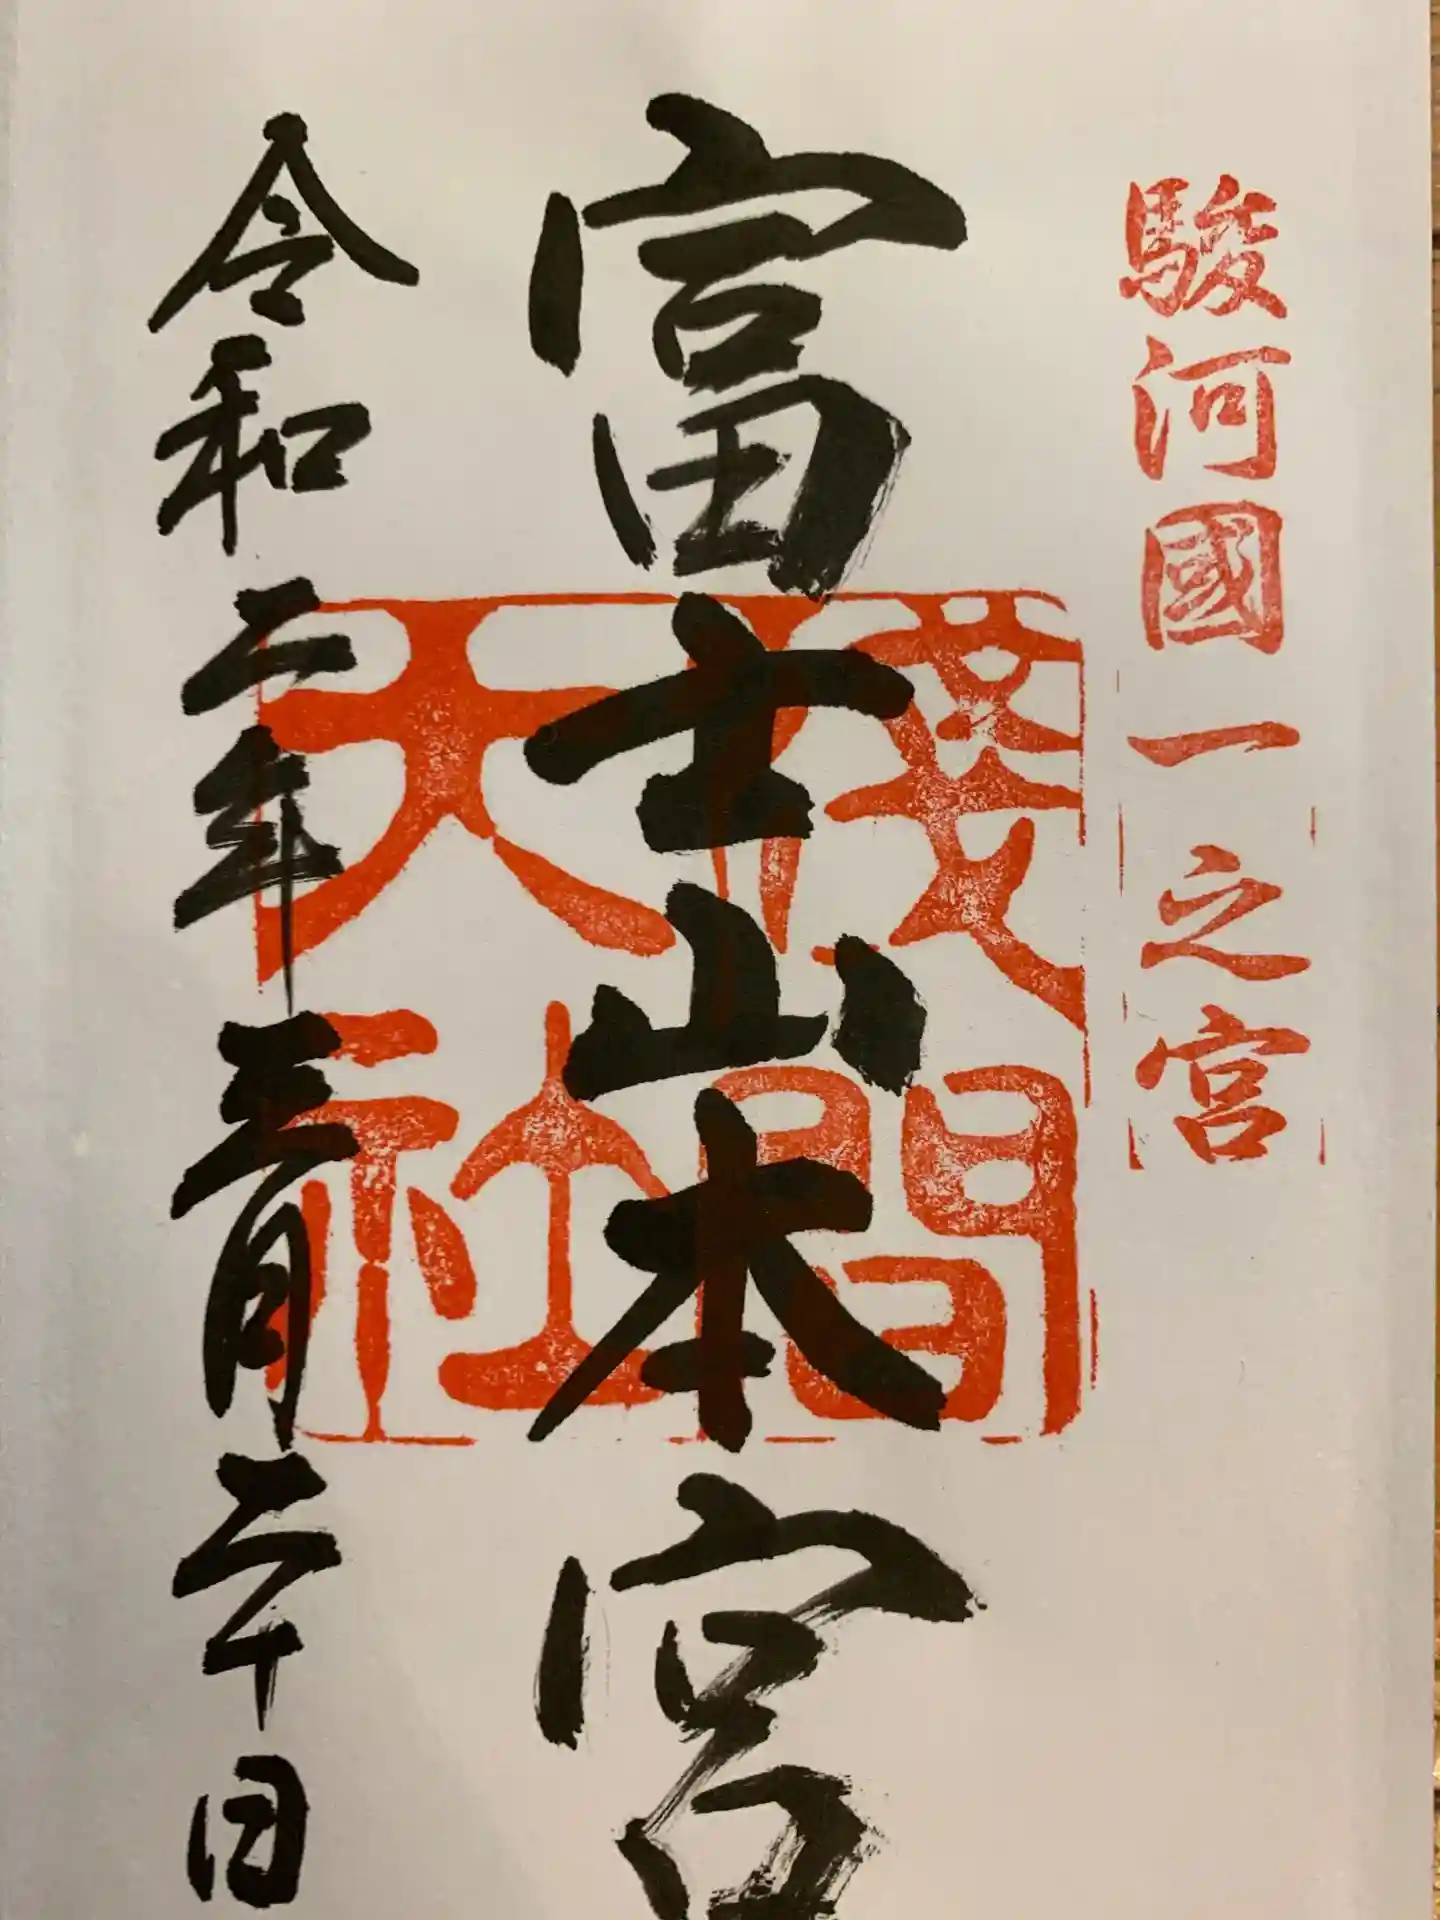 駿河國一之宮
富士山本宮
淺間
天社
令和二年三月二十日